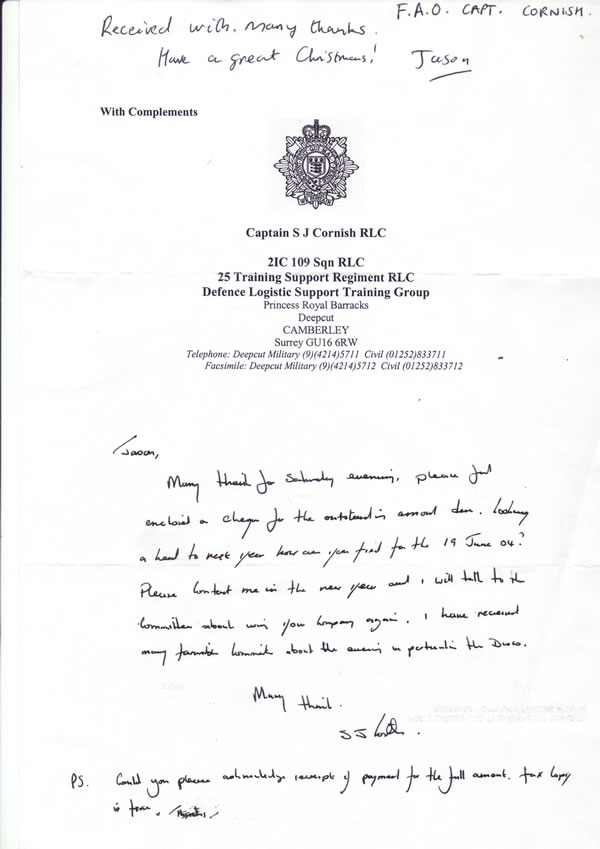 F.A.O. CAPT. CORNISH.
Received with many thanks.
Have a great Christmas! Jason
With Complements
Captain S J Cornish RLC
2IC 109 Sqn RLC
25 Training Support Regiment RLC
Defence Logistic Support Training Group
Princess Royal Barracks
Deepcut
CAMBERLEY
Surrey GU16 6RW
Telephone: Deepcut Military (9)(4214)5711 Civil (01252)833711
Facsimile: Deepcut Military (9)(4214)5712 Civil (01252)833712
Jason,
Many thanks for Saturday evening, please find
enclosed a cheque for the outstanding amount due. Looking
a head to next year how are you fixed for the 19 June 04?
Please contact me in the new year and I will talk to the
Committee about using your company again. I have received
many favourable comments about the evening in particular the Disco.
Many thanks.
S J
PS. Could you please acknowledge receipt of payment for the full amount. fax copy
is fine.